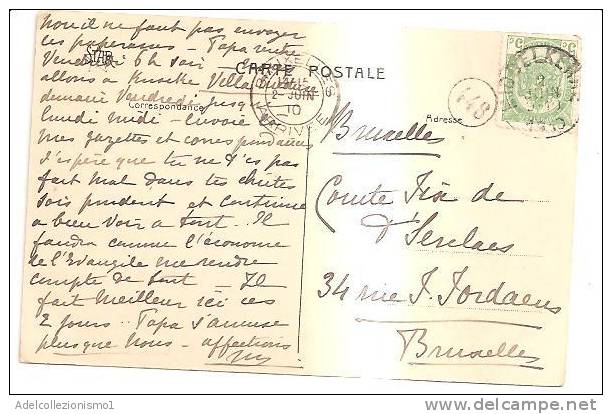 Non il ne faut pas envoyer
les paperasses — Papa rentre
Vendredi 6 h soir
STAR
allons à Knocke Villa
demain Vendredi jusque
lundi midi — Envoie
mes gazettes et correspondances
J'espère que tu ne t'es pas
fait mal dans tes chûtes
Sois prudent et continue
à bien voir à tout. Il
faudra comme l'économe
de l'Evangile me rendre
compte de tout — Il
fait meilleur ici ces
2 jours. Papa s'amuse
plus que nous — affections
CARTE POSTALE
Correspondance
Adresse
2 - JUIN
10
ARRIVÉE
448
Bruxelles
Comte Fix de
d'Serclaes
34 rue J. Jordaens
Bruxelles
5c
www.delcampe.net
Adecollezionismo1